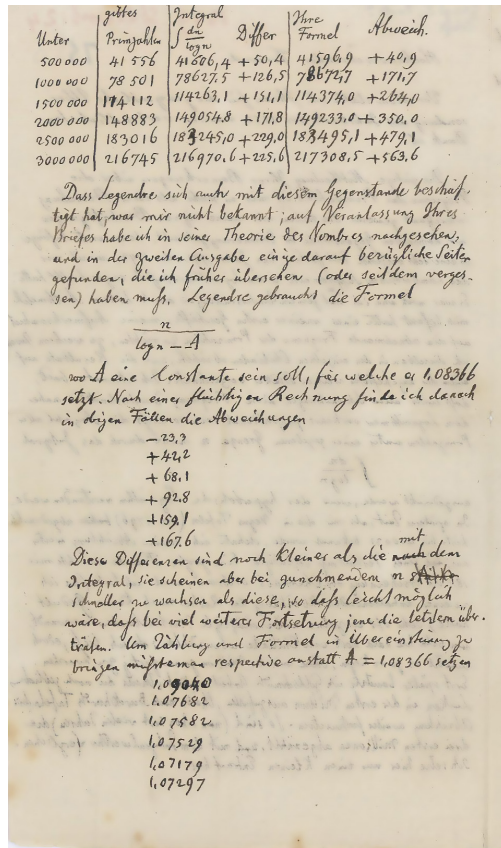 Unter | gibt es Primzahlen | Integral ∫ dn/log n | Differ | Ihre Formel | Abweich.
500000 | 41556 | 41606,4 | +50,4 | 41596,9 | +40,9
1000000 | 78501 | 78627,5 | +126,5 | 78672,7 | +171,7
1500000 | 114112 | 114263,1 | +151,1 | 114374,0 | +264,0
2000000 | 148883 | 149054,8 | +171,8 | 149233,0 | +350,0
2500000 | 183016 | 183245,0 | +229,0 | 183495,1 | +479,1
3000000 | 216745 | 216970,6 | +225,6 | 217308,5 | +563,6
Dass Legendre sich auch mit diesem Gegenstande beschäf-
tigt hat, was mir nicht bekannt; auf Veranlassung Ihres
Briefes habe ich in seiner Theorie des Nombres nachgesehen,
und in der zweiten Ausgabe einige darauf bezügliche Seiten
gefunden, die ich früher übersehen (oder seitdem verges-
sen) haben muss. Legendre gebraucht die Formel
n
log n – A
wo A eine Constante sein soll, für welche er 1,08366
setzt. Nach einer flüchtigen Rechnung finde ich danach
in obigen Fällen die Abweichungen
– 23,3
+ 42,2
+ 68,1
+ 92,8
+ 159,1
+ 167,6
Diese Differenzen sind noch kleiner als die mit dem
Integral, sie scheinen aber bei zunehmendem n
schneller zu wachsen als diese, so dass leicht möglich
wäre, dass bei viel weiterer Fortsetzung jene die letztern über-
träfen. Um Zählung und Formel in Übereinstimung zu
bringen müsste man respective anstatt A = 1,08366 setzen
1,09040
1,07682
1,07582
1,07529
1,07179
1,07297